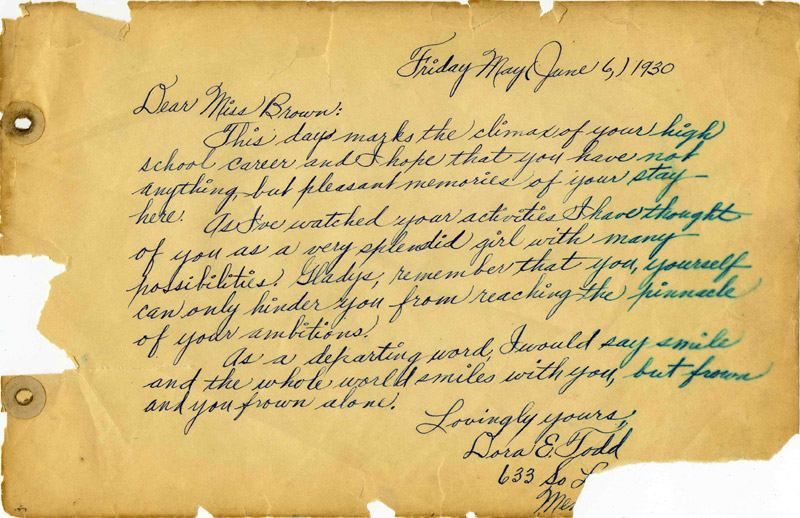 Friday May (June 6,) 1930
Dear Miss Brown:
This days marks the climax of your high
school career and I hope that you have not
anything, but pleasant memories of your stay
here.
As I've watched your activities I have thought
of you as a very splendid girl with many
possibilities. Gladys, remember that you, yourself
can only hinder you from reaching the pinnacle
of your ambitions.
As a departing word, I would say smile
and the whole world smiles with you, but frown
and you frown alone.
Lovingly yours,
Dora E. Todd
633 So